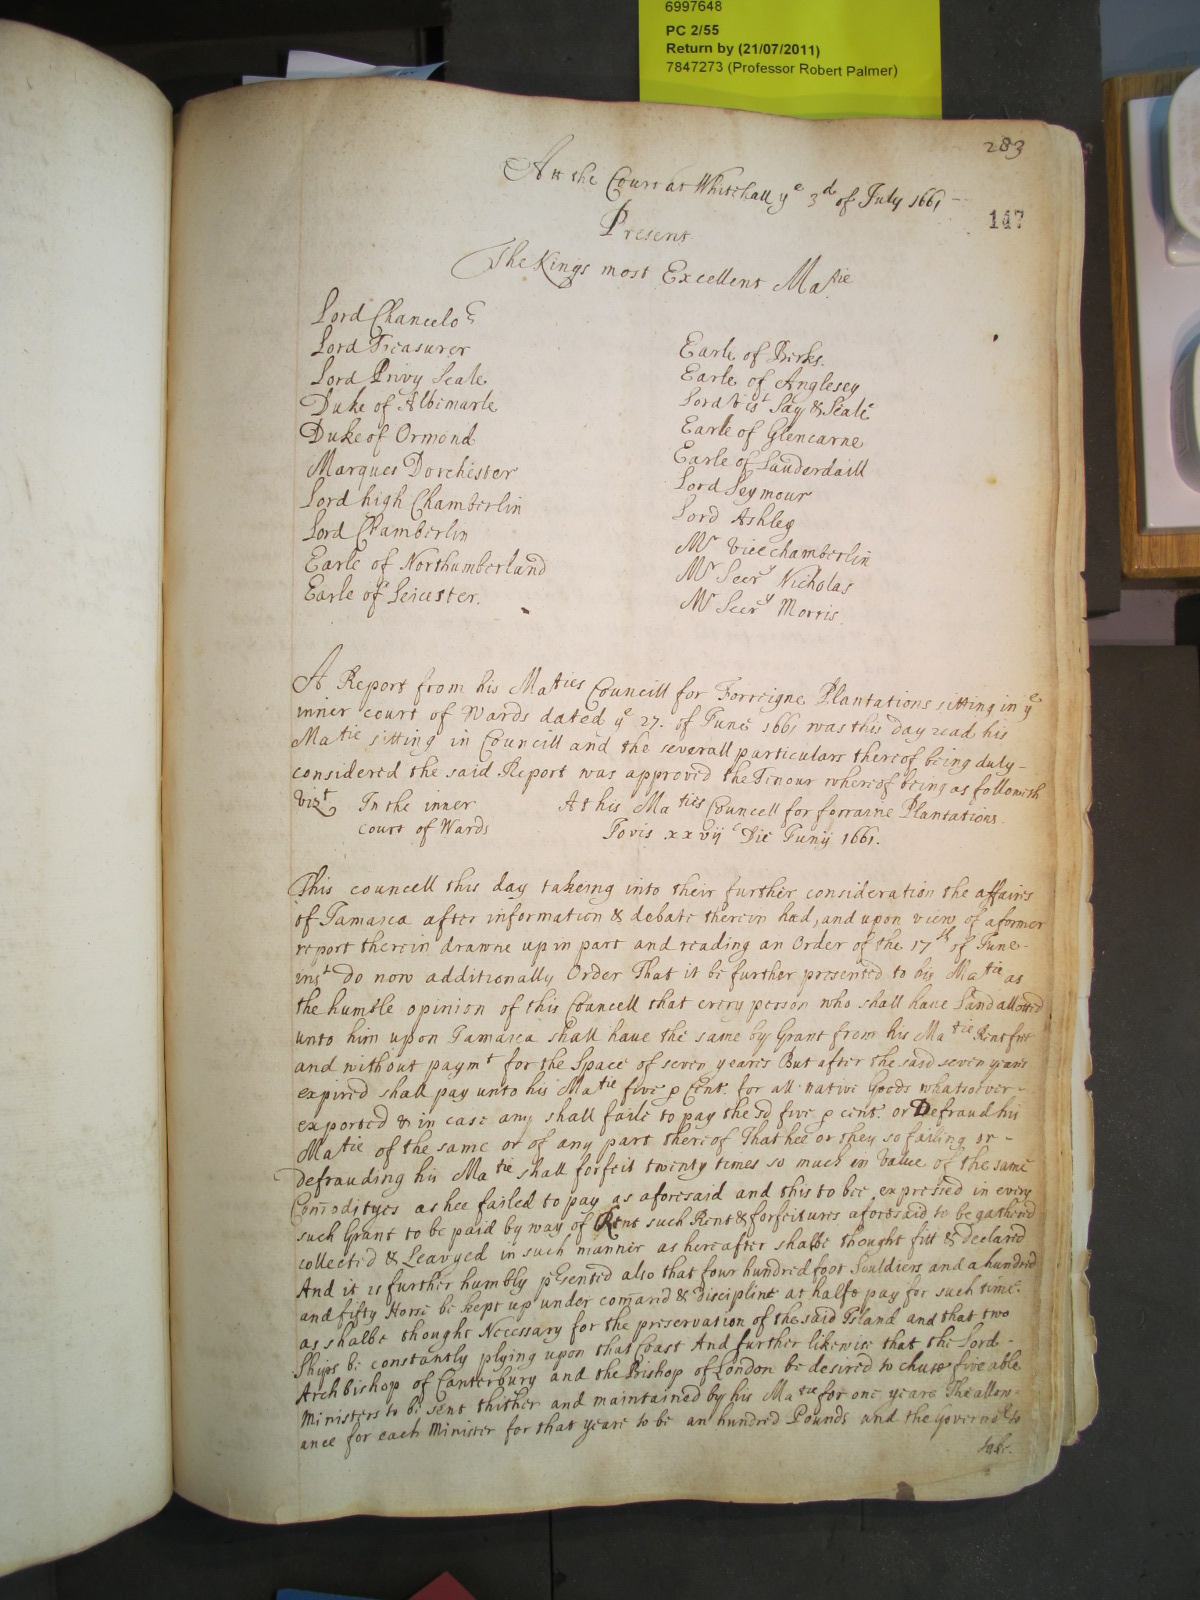 6997648
PC 2/55
Return by (21/07/2011)
7847273 (Professor Robert Palmer)
283
Att the Court at Whitehall ye 3d of July 1661
147
Present
The Kings most Excellent Matie
Lord Chancelor
Lord Treasurer
Lord Privy Seale
Duke of Albimarle
Duke of Ormond
Marques Dorchester
Lord high Chamberlin
Lord Chamberlin
Earle of Northumberland
Earle of Leicester.
Earle of Berks.
Earle of Anglesey
Lord Vist Say & Seale
Earle of Glencarne
Earle of Lauderdaill
Lord Seymour
Lord Ashley
Mr Vicechamberlin
Mr Secry Nicholas
Mr Secry Morris
A Report from his Maties Councill for Forreigne Plantations sitting in ye
inner court of Wards dated ye 27. of June 1661 was this day read his
Matie sitting in Councill and the severall particulars thereof being duly
considered the said Report was approved the Tenour whereof being as followeth
vizt In the inner At his Maties Councell for forraine Plantations
court of Wards Jovis xxvij Die Junij 1661.
This councell this day takeing into their further consideration the affaires
of Jamaica after information & debate therein had, and upon view of a former
report therein drawne up in part and reading an Order of the 17th of June
inst do now additionally Order That it be further presented to his Matie as
the humble opinion of this Councell that every person who shall have Land allowed
unto him upon Jamaica shall have the same by Grant from his Matie Rent free
and without paymt for the Space of seven yeares But after the said seven years
expired shall pay unto his Matie five p Cent. for all native Goods whatsoever
exported & in case any shall faile to pay the sd five p cent. or Defraud his
Matie of the same or of any part thereof That hee or they so failing or
defrauding his Matie shall forfeit twenty times so much in Value of the same
Comodityes as hee failed to pay as aforesaid and this to bee expressed in every
such Grant to be paid by way of Rent such Rent & forfeitures aforesaid to be gathered
collected & Leavyed in such manner as hereafter shalbe thought fitt & declared
And it is further humbly psented also that four hundred foot Souldiers and a hundred
and fifty Horse be kept up under comand & discipline at halfe pay for such time
as shalbe thought Necessary for the preservation of the said Island and that two
Ships be constantly plying upon that Coast And further likewise that the Lord
Archbishop of Canterbury and the Bishop of London be desired to chuse five able
Ministers to be sent thither and maintained by his Matie for one yeare The allow-
ance for each Minister for that yeare to be an hundred Pounds and the Governor to